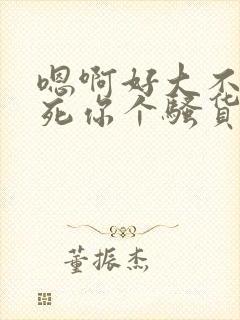 嗯啊好大不
死你个骚货
董振杰